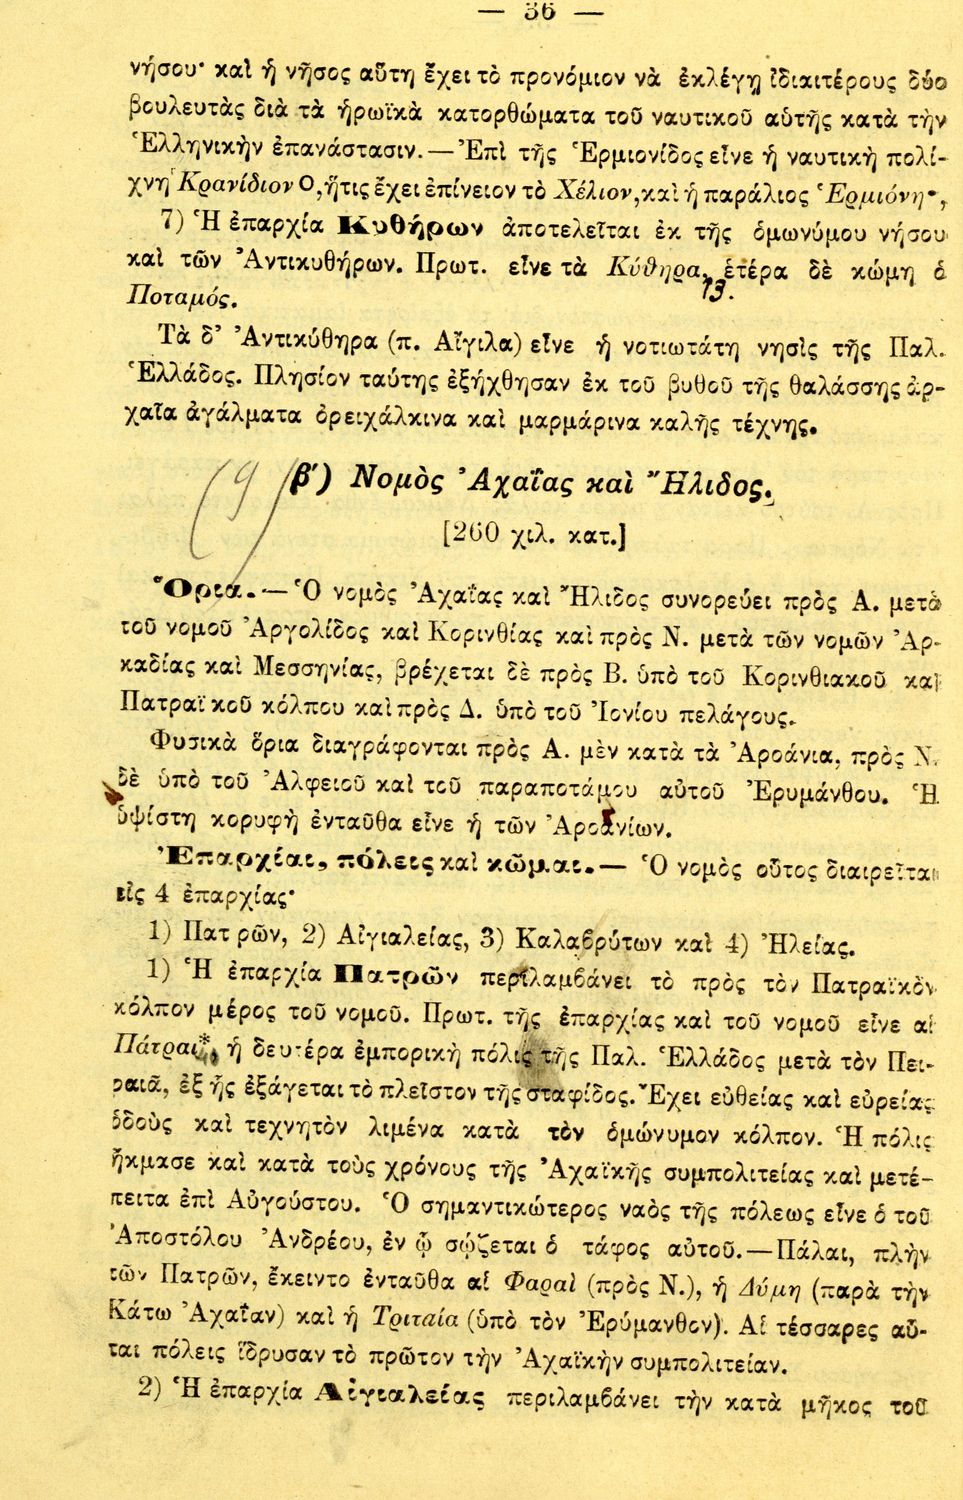 — 56 —
νήσου· καὶ ἡ νῆσος αὕτη ἔχει τὸ προνόμιον νὰ ἐκλέγῃ ἰδιαιτέρους δύο
βουλευτὰς διὰ τὰ ἡρωϊκὰ κατορθώματα τοῦ ναυτικοῦ αὐτῆς κατὰ τὴν
Ἑλληνικὴν ἐπανάστασιν.—Ἐπὶ τῆς Ἑρμιονίδος εἶνε ἡ ναυτικὴ πολί-
χνη Κρανίδιον Ο, ἥτις ἔχει ἐπίνειον τὸ Χέλιον, καὶ ἡ παράλιος Ἑρμιόνη*,
7) Ἡ ἐπαρχία Κυθήρων ἀποτελεῖται ἐκ τῆς ὁμωνύμου νήσου
καὶ τῶν Ἀντικυθήρων. Πρωτ. εἶνε τὰ Κύθηρα, ἑτέρα δὲ κώμη ὁ
Ποταμός.
13.
Τὰ δ' Ἀντικύθηρα (π. Αἴγιλα) εἶνε ἡ νοτιωτάτη νησὶς τῆς Παλ.
Ἑλλάδος. Πλησίον ταύτης ἐξήχθησαν ἐκ τοῦ βυθοῦ τῆς θαλάσσης ἀρ-
χαῖα ἀγάλματα ὀρειχάλκινα καὶ μαρμάρινα καλῆς τέχνης.
(9) β') Νομὸς Ἀχαΐας καὶ Ἤλιδος.
[260 χιλ. κατ.]
Ὅρια.—Ὁ νομὸς Ἀχαΐας καὶ Ἤλιδος συνορεύει πρὸς Α. μετὰ
τοῦ νομοῦ Ἀργολίδος καὶ Κορινθίας καὶ πρὸς Ν. μετὰ τῶν νομῶν Ἀρ-
καδίας καὶ Μεσσηνίας, βρέχεται δὲ πρὸς Β. ὑπὸ τοῦ Κορινθιακοῦ καὶ
Πατραϊκοῦ κόλπου καὶ πρὸς Δ. ὑπὸ τοῦ Ἰονίου πελάγους.
Φυσικὰ ὅρια διαγράφονται πρὸς Α. μὲν κατὰ τὰ Ἀροάνια, πρὸς Ν.
δὲ ὑπὸ τοῦ Ἀλφειοῦ καὶ τοῦ παραποτάμου αὐτοῦ Ἐρυμάνθου. Ἡ
ὑψίστη κορυφὴ ἐνταῦθα εἶνε ἡ τῶν Ἀροανίων.
Ἐπαρχίαι, πόλεις καὶ κῶμαι.— Ὁ νομὸς οὗτος διαιρεῖται
εἰς 4 ἐπαρχίας·
1) Πατρῶν, 2) Αἰγιαλείας, 3) Καλαβρύτων καὶ 4) Ἠλείας.
1) Ἡ ἐπαρχία Πατρῶν περιλαμβάνει τὸ πρὸς τὸν Πατραϊκὸν
κόλπον μέρος τοῦ νομοῦ. Πρωτ. τῆς ἐπαρχίας καὶ τοῦ νομοῦ εἶνε αἱ
Πάτραι*, ἡ δευτέρα ἐμπορικὴ πόλις τῆς Παλ. Ἑλλάδος μετὰ τὸν Πει-
ραιᾶ, ἐξ ἧς ἐξάγεται τὸ πλεῖστον τῆς σταφίδος. Ἔχει εὐθείας καὶ εὐρείας
ὁδοὺς καὶ τεχνητὸν λιμένα κατὰ τὸν ὁμώνυμον κόλπον. Ἡ πόλις
ἤκμασε καὶ κατὰ τοὺς χρόνους τῆς Ἀχαϊκῆς συμπολιτείας καὶ μετέ-
πειτα ἐπὶ Αὐγούστου. Ὁ σημαντικώτερος ναὸς τῆς πόλεως εἶνε ὁ τοῦ
Ἀποστόλου Ἀνδρέου, ἐν ᾧ σῴζεται ὁ τάφος αὐτοῦ.—Πάλαι, πλὴν
τῶν Πατρῶν, ἔκειντο ἐνταῦθα αἱ Φαραὶ (πρὸς Ν.), ἡ Δύμη (παρὰ τὴν
Κάτω Ἀχαΐαν) καὶ ἡ Τριταία (ὑπὸ τὸν Ἐρύμανθον). Αἱ τέσσαρες αὗ-
ται πόλεις ἵδρυσαν τὸ πρῶτον τὴν Ἀχαϊκὴν συμπολιτείαν.
2) Ἡ ἐπαρχία Αἰγιαλείας περιλαμβάνει τὴν κατὰ μῆκος τοῦ